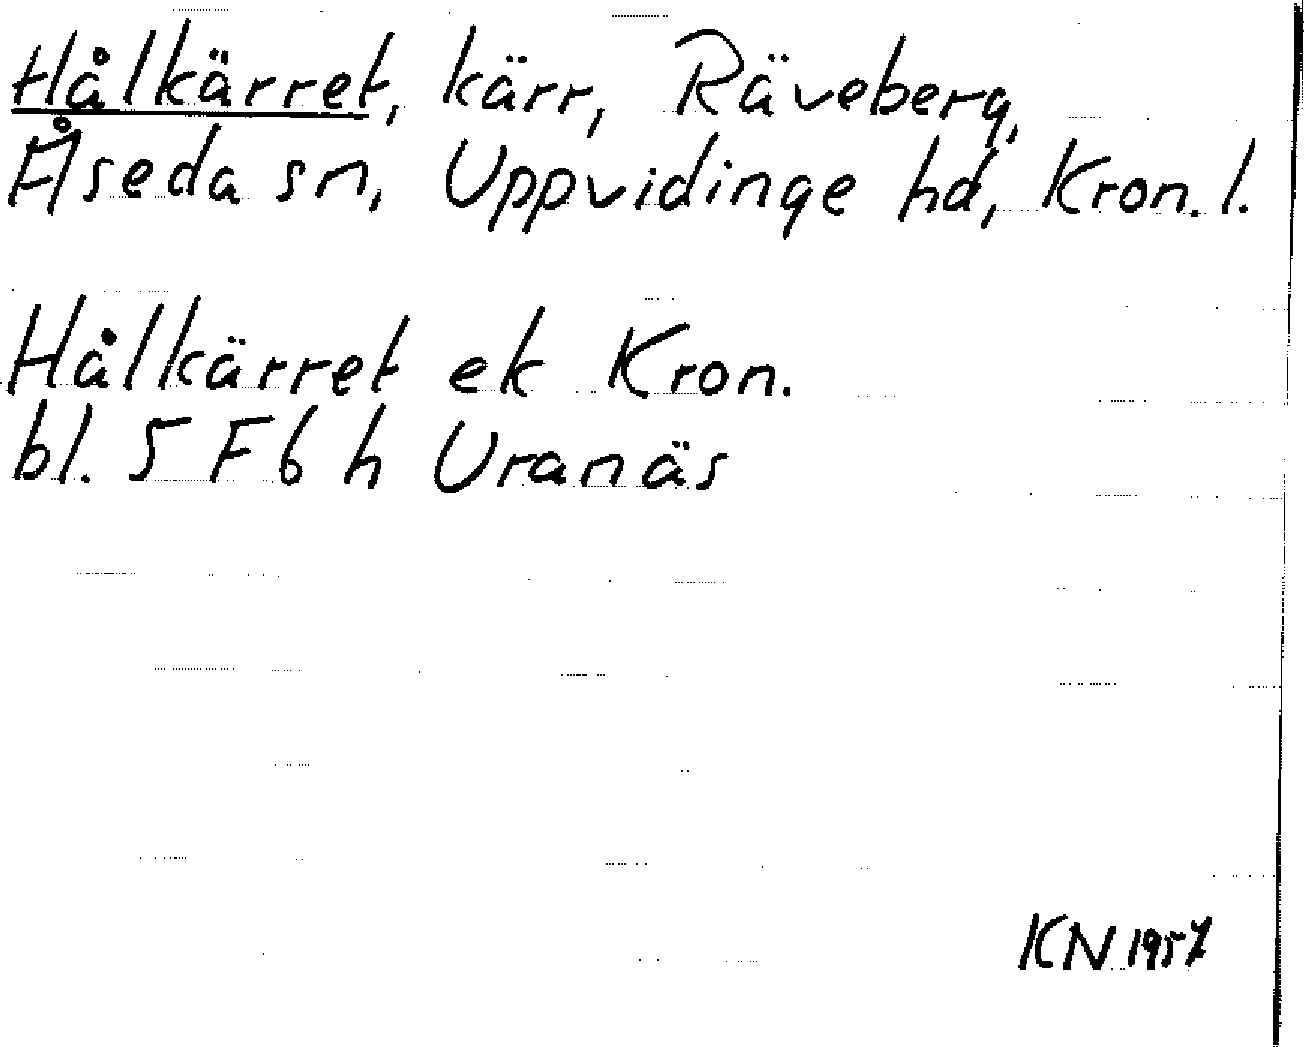 Hålkärret, kärr, Räveberg,
Åseda sn, Uppvidinge hd, Kron. l.
Hålkärret ek Kron.
bl. 5 F 6 h Uranäs
KN 1957